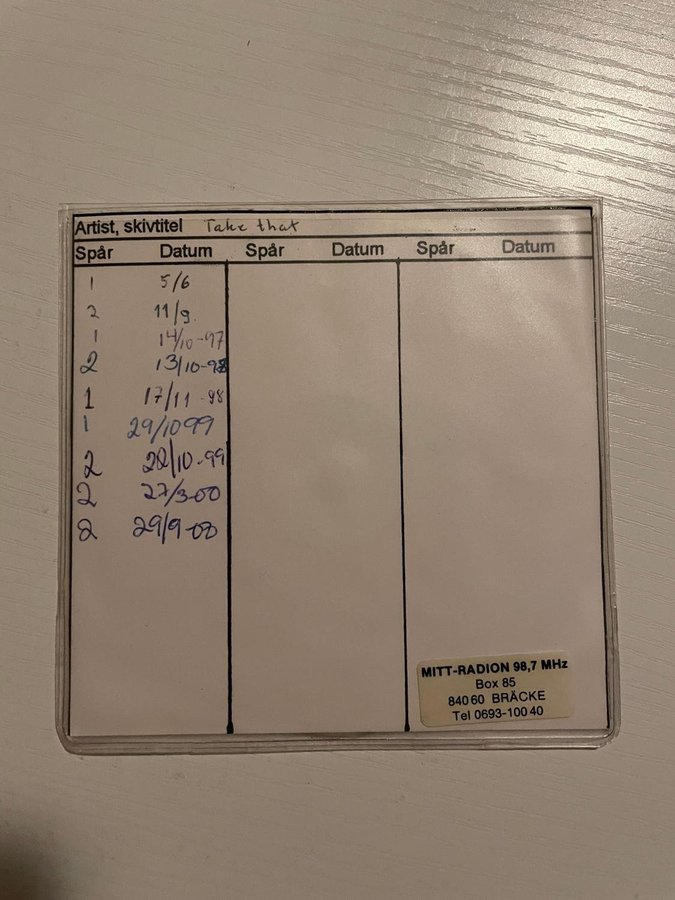 Artist, skivtitel Take that
Spår Datum Spår Datum Spår Datum
1 5/6
2 11/9.
1 14/10-97
2 13/10-98
1 17/11-98
1 29/10 99
2 28/10-99
2 27/3-00
2 29/9-00
MITT-RADION 98,7 MHz
Box 85
840 60 BRÄCKE
Tel 0693-100 40